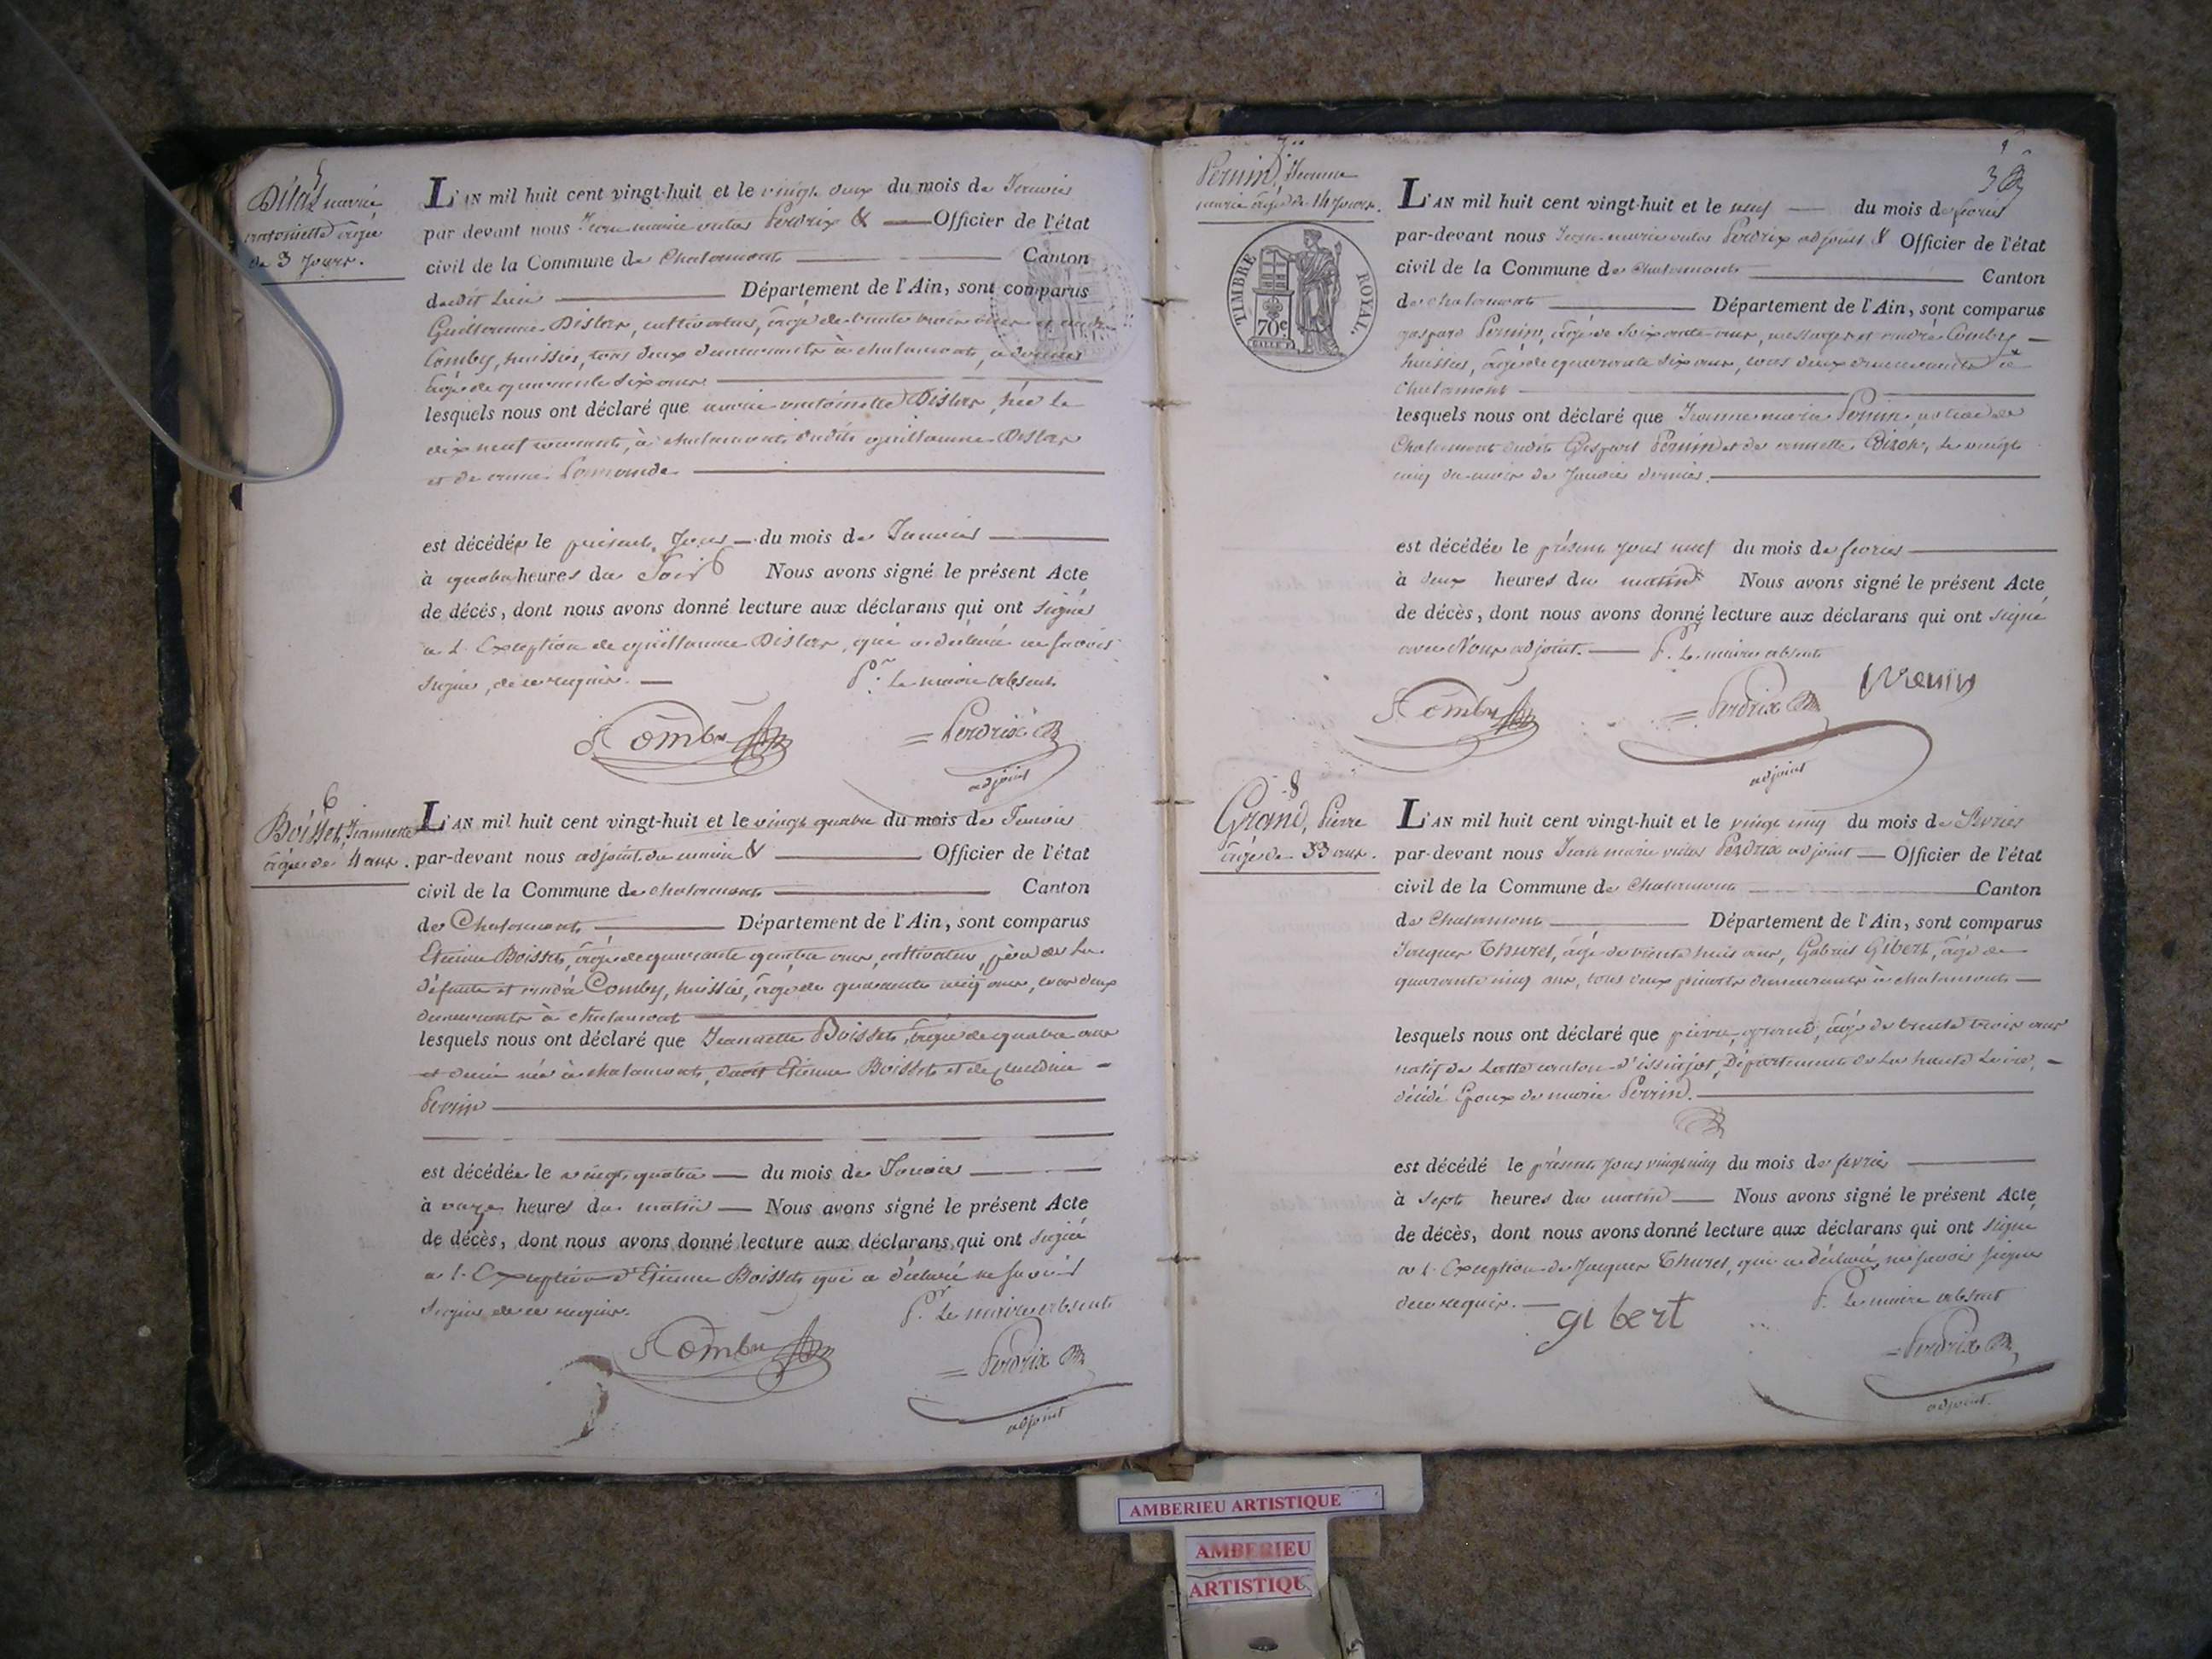 5
marie
antoinette âgée
de 3 Jours.
L'AN mil huit cent vingt-huit et le vingt deux du mois de Janvier
par devant nous Jean marie Perdrix & Officier de l'état
civil de la Commune de Chalamont Canton
dudit Lieu Département de l'Ain, sont comparus
Guillaume Dislar, cultivateur, âgé de trente trois ans et andré
Comby, huissier, tous deux demeurants à chalamont,
âgé de quarante six ans
lesquels nous ont déclaré que marie antoinette Dislar, née le
dix neuf courant, à chalamont, dudit guillaume Dislar
et de
est décédée le présent Jour du mois de Janvier
à quatre heures du Soir Nous avons signé le présent Acte
de décès, dont nous avons donné lecture aux déclarans qui ont signé
a L'Exception de guillaume Dislar, qui a déclaré ne savoir
signer, de ce requis.
Pr. Le maire absent
Comby
Perdrix
adjoint
6
Boisset, Jeannette
âgée de 4 ans.
L'AN mil huit cent vingt-huit et le vingt quatre du mois de Janvier
par-devant nous adjoint du maire & Officier de l'état
civil de la Commune de chalamont Canton
de Chalamont Département de l'Ain, sont comparus
Etienne Boisset, âgé de quarante quatre ans, cultivateur, père de la
défunte et andré Comby, huissier, âgé de quarante cinq ans, tous deux
demeurants à chalamont
lesquels nous ont déclaré que Jeannette Boisset, âgée de quatre ans
et demie née à chalamont, dudit Etienne Boisset et de Claudine
Perrin
est décédée le vingt quatre du mois de Janvier
à onze heures du matin Nous avons signé le présent Acte
de décès, dont nous avons donné lecture aux déclarans qui ont signé
a l'Exception d'Etienne Boisset qui a déclaré ne savoir
signer, de ce requis.
Pr. Le maire absent
Comby
Perdrix
adjoint
7
Pernin, Jeanne
marie âgée de 14 Jours.
TIMBRE ROYAL.
70c
L'AN mil huit cent vingt-huit et le neuf du mois de fevrier
par-devant nous Jean-marie Perdrix adjoint & Officier de l'état
civil de la Commune de Chalamont Canton
de chalamont Département de l'Ain, sont comparus
gaspard Pernin, âgé de soixante ans, messager et andré Comby
huissier, âgé de quarante six ans, tous deux demeurants à
Chalamont
lesquels nous ont déclaré que Jeanne marie Pernin, native de
Chalamont dudit Gaspard Pernin et de annette, le vingt
cinq du mois de Janvier dernier.
est décédée le présent jour neuf du mois de fevrier
à deux heures du matin Nous avons signé le présent Acte
de décès, dont nous avons donné lecture aux déclarans qui ont signé
avec Nous adjoint.
P. Le maire absent
Comby
Perdrix
adjoint
8
Grand, Pierre
âgé de 33 ans.
L'AN mil huit cent vingt-huit et le vingt cinq du mois de fevrier
par-devant nous Jean marie Perdrix adjoint Officier de l'état
civil de la Commune de Chalamont Canton
de Chalamont Département de l'Ain, sont comparus
Jacques Thuret, âgé de trente huit ans, Gabriel Gibert, âgé de
quarante cinq ans, tous deux demeurants à chalamont
lesquels nous ont déclaré que pierre grand, âgé de trente trois ans
natif de canton d'issinjot, Département de La haute Loire,
décédé Epoux de marie Perrin.
est décédé le présent jour vingt cinq du mois de fevrier
à sept heures du matin Nous avons signé le présent Acte
de décès, dont nous avons donné lecture aux déclarans qui ont signé
a l'Exception de Jacques Thuret, qui a déclaré ne savoir signer
de ce requis.
P. Le maire absent
gibert
Perdrix
adjoint.
AMBERIEU ARTISTIQUE
AMBERIEU
ARTISTIQU